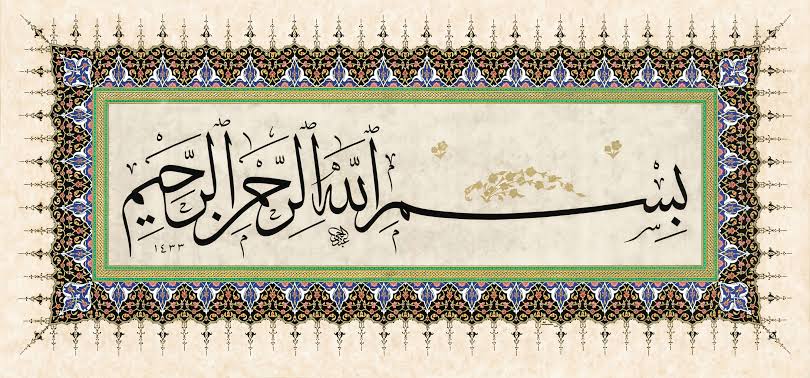 بِسْمِ اللّٰهِ الرَّحْمٰنِ الرَّحِيْمِ
١٤٣٣